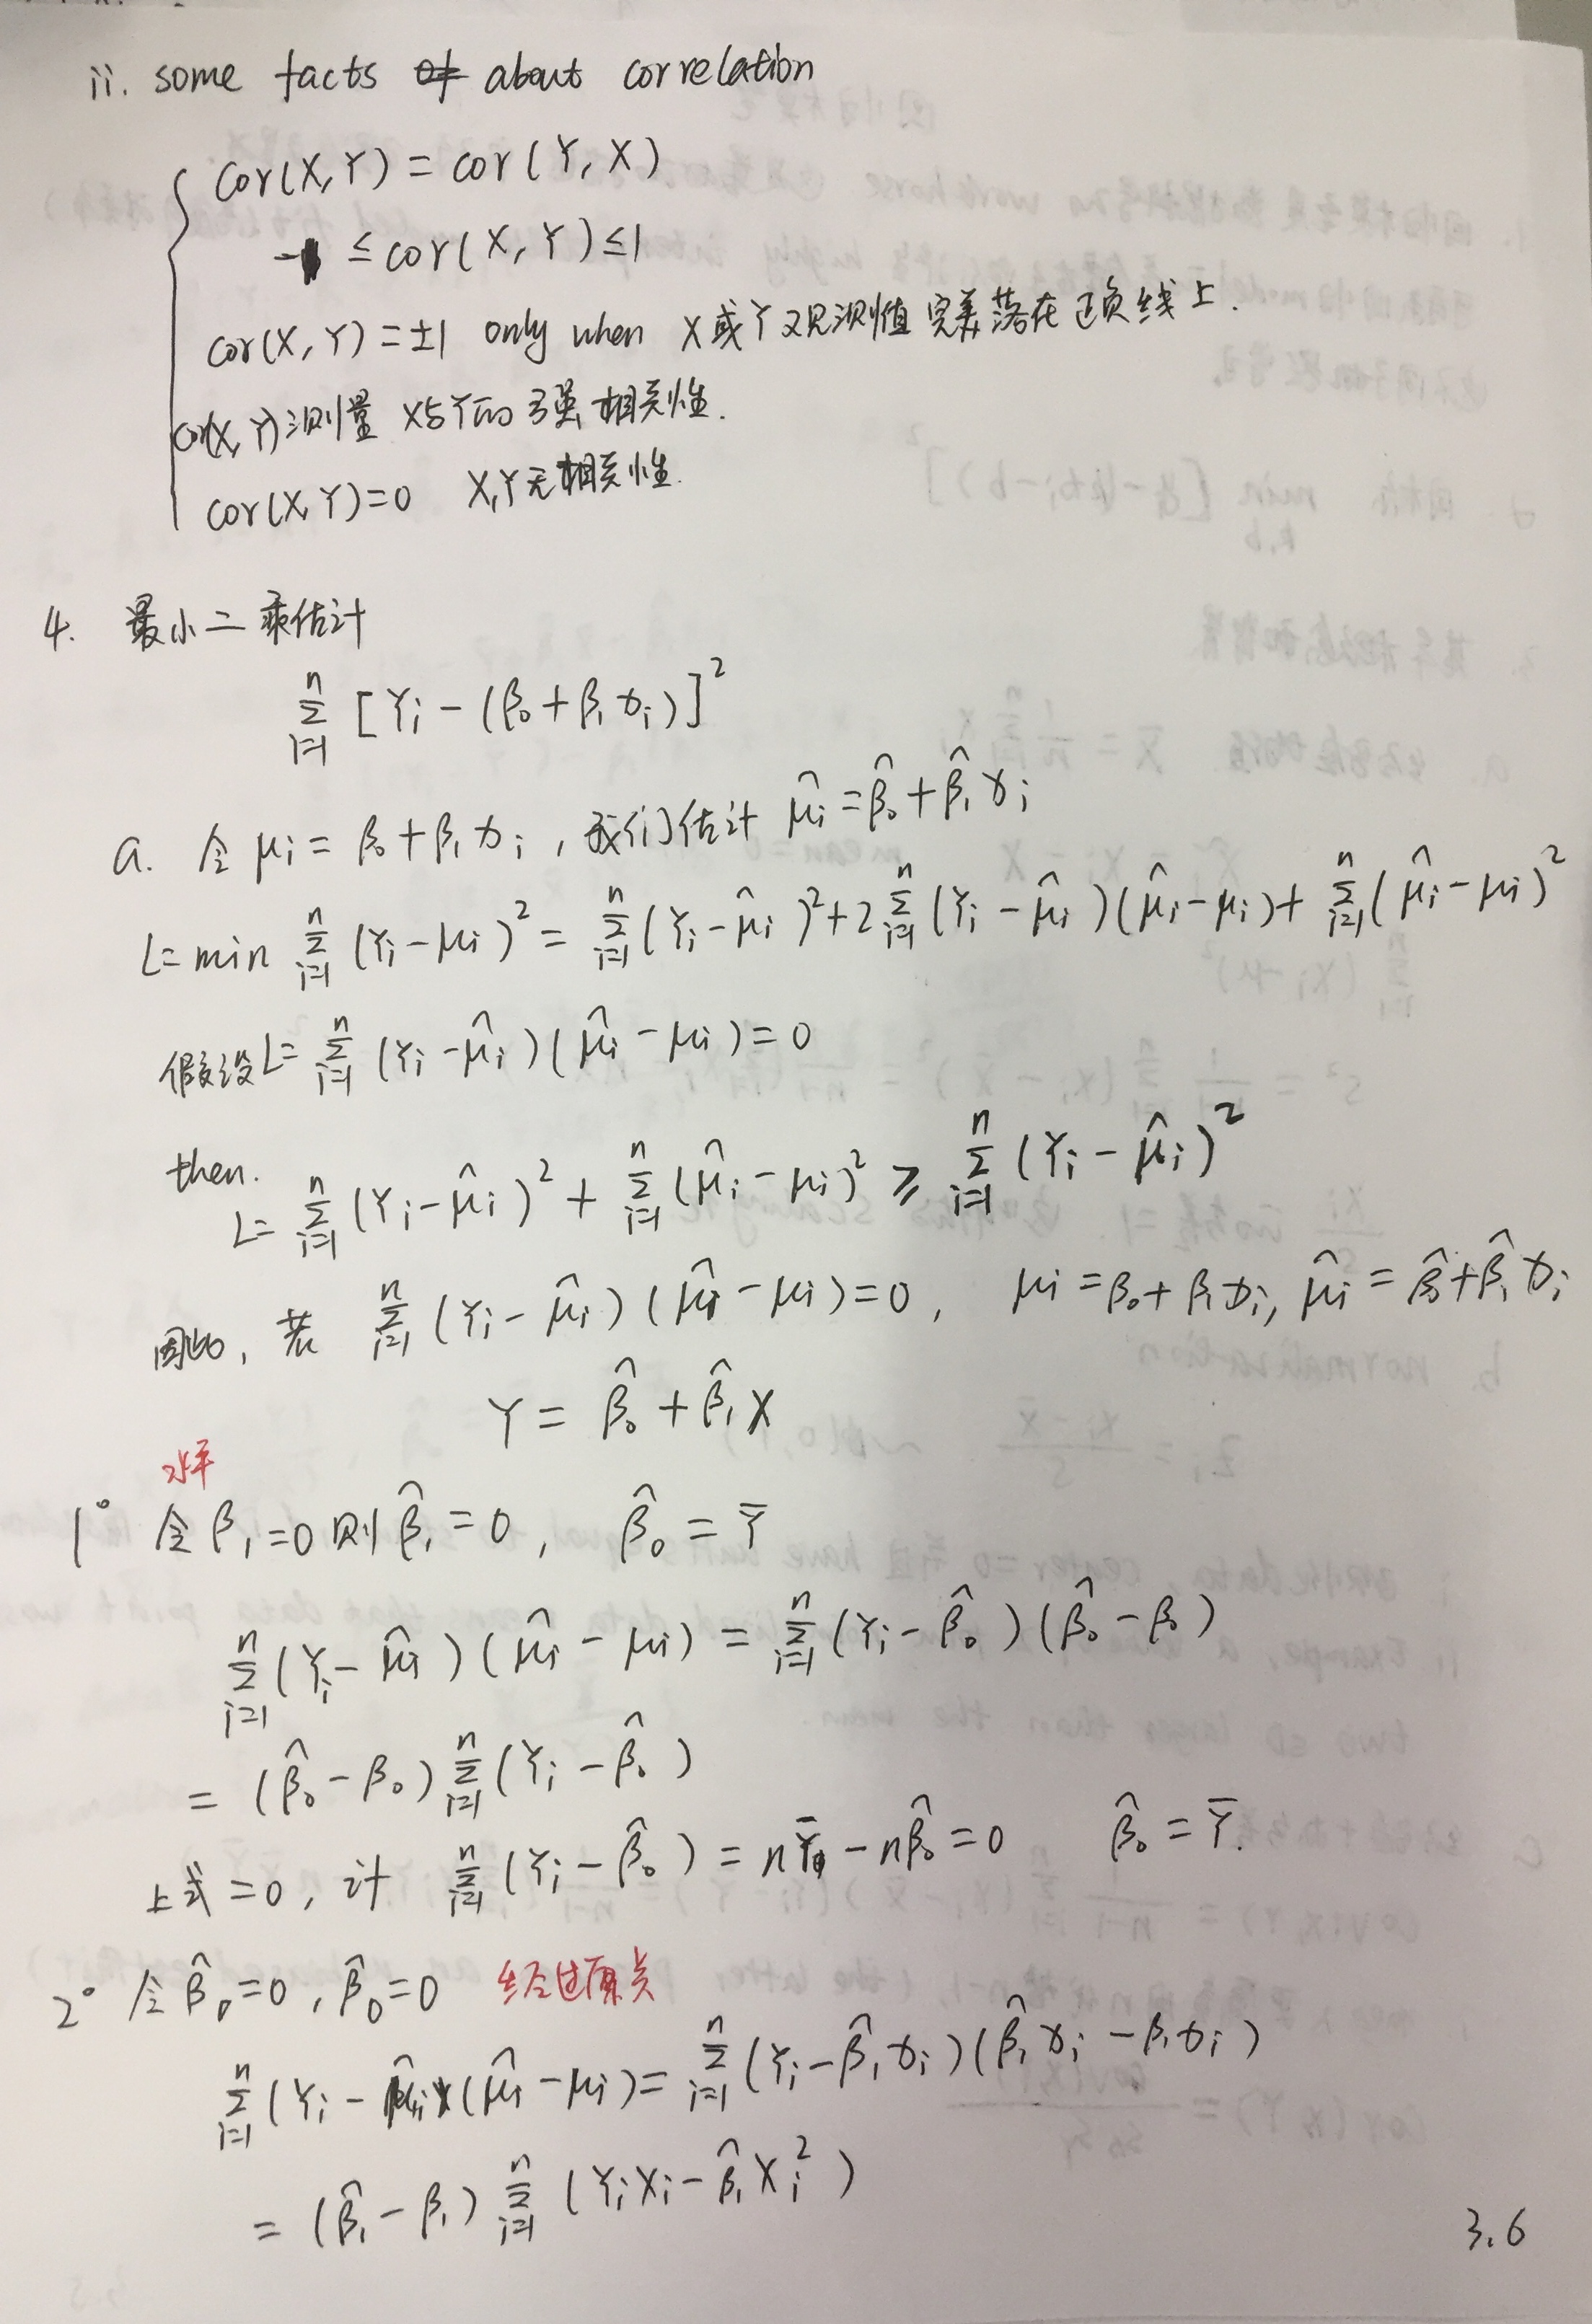 ii. some facts of about correlation
Cor(X,Y) = cor(Y,X)
-1 ≤ cor(X,Y) ≤ 1
cor(X,Y) = ±1 only when X或Y观测值完美落在正负线上.
cor(X,Y)测量X与Y的强相关性.
cor(X,Y)=0 X,Y无相关性.
4. 最小二乘估计
Σ_{i=1}^{n} [Yi - (β0 + β1 xi)]²
a. 令 μi = β0 + β1 xi, 我们估计 μ̂i = β̂0 + β̂1 xi
L = min Σ_{i=1}^{n} (Yi - μi)² = Σ_{i=1}^{n} (Yi - μ̂i)² + 2 Σ_{i=1}^{n} (Yi - μ̂i)(μ̂i - μi) + Σ_{i=1}^{n} (μ̂i - μi)²
假设 L = Σ_{i=1}^{n} (Yi - μ̂i)(μ̂i - μi) = 0
then.
L = Σ_{i=1}^{n} (Yi - μ̂i)² + Σ_{i=1}^{n} (μ̂i - μi)² ≥ Σ_{i=1}^{n} (Yi - μ̂i)²
因此, 若 Σ_{i=1}^{n} (Yi - μ̂i)(μ̂i - μi) = 0, μi = β0 + β1 xi, μ̂i = β̂0 + β̂1 xi
Y = β̂0 + β̂1 X
水平
1° 令 β1 = 0 则 β̂1 = 0, β̂0 = Ȳ
Σ_{i=1}^{n} (Yi - μ̂i)(μ̂i - μi) = Σ_{i=1}^{n} (Yi - β̂0)(β̂0 - β0)
= (β̂0 - β0) Σ_{i=1}^{n} (Yi - β̂0)
上式 = 0, 计 Σ_{i=1}^{n} (Yi - β̂0) = nȲ - nβ̂0 = 0 β̂0 = Ȳ.
2° 令 β̂0 = 0, β̂0 = 0 经过原点
Σ_{i=1}^{n} (Yi - μ̂i)(μ̂i - μi) = Σ_{i=1}^{n} (Yi - β̂1 xi)(β̂1 xi - β1 xi)
= (β̂1 - β1) Σ_{i=1}^{n} (Yi Xi - β̂1 Xi²)
3.6